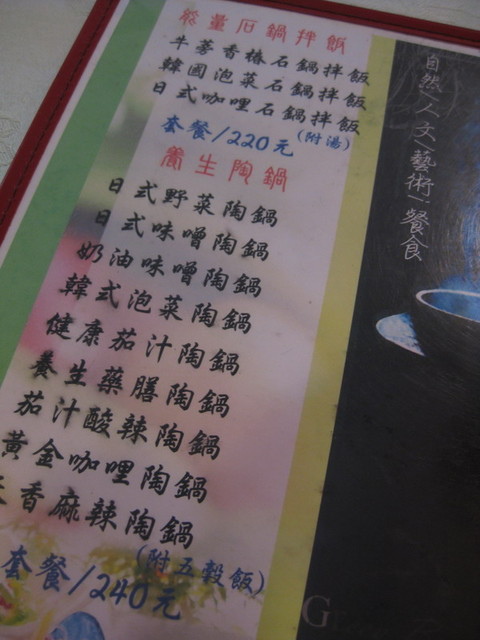 能量石鍋拌飯
牛蒡香椿石鍋拌飯
韓國泡菜石鍋拌飯
日式咖哩石鍋拌飯
套餐/220元(附湯)
養生陶鍋
日式野菜陶鍋
日式味噌陶鍋
奶油味噌陶鍋
韓式泡菜陶鍋
健康茄汁陶鍋
養生藥膳陶鍋
茄汁酸辣陶鍋
黃金咖哩陶鍋
香麻辣陶鍋
(附五穀飯)
套餐/240元
自然/人文/藝術/餐食
G